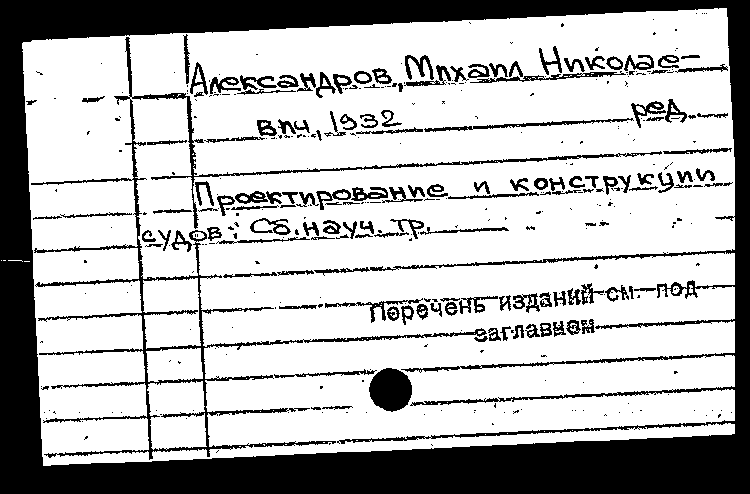 Александров, Михаил Николае-
вич, 1932 ред.
Проектирование и конструкции
судов: Сб. науч. тр.
Перечень изданий см. под
заглавием